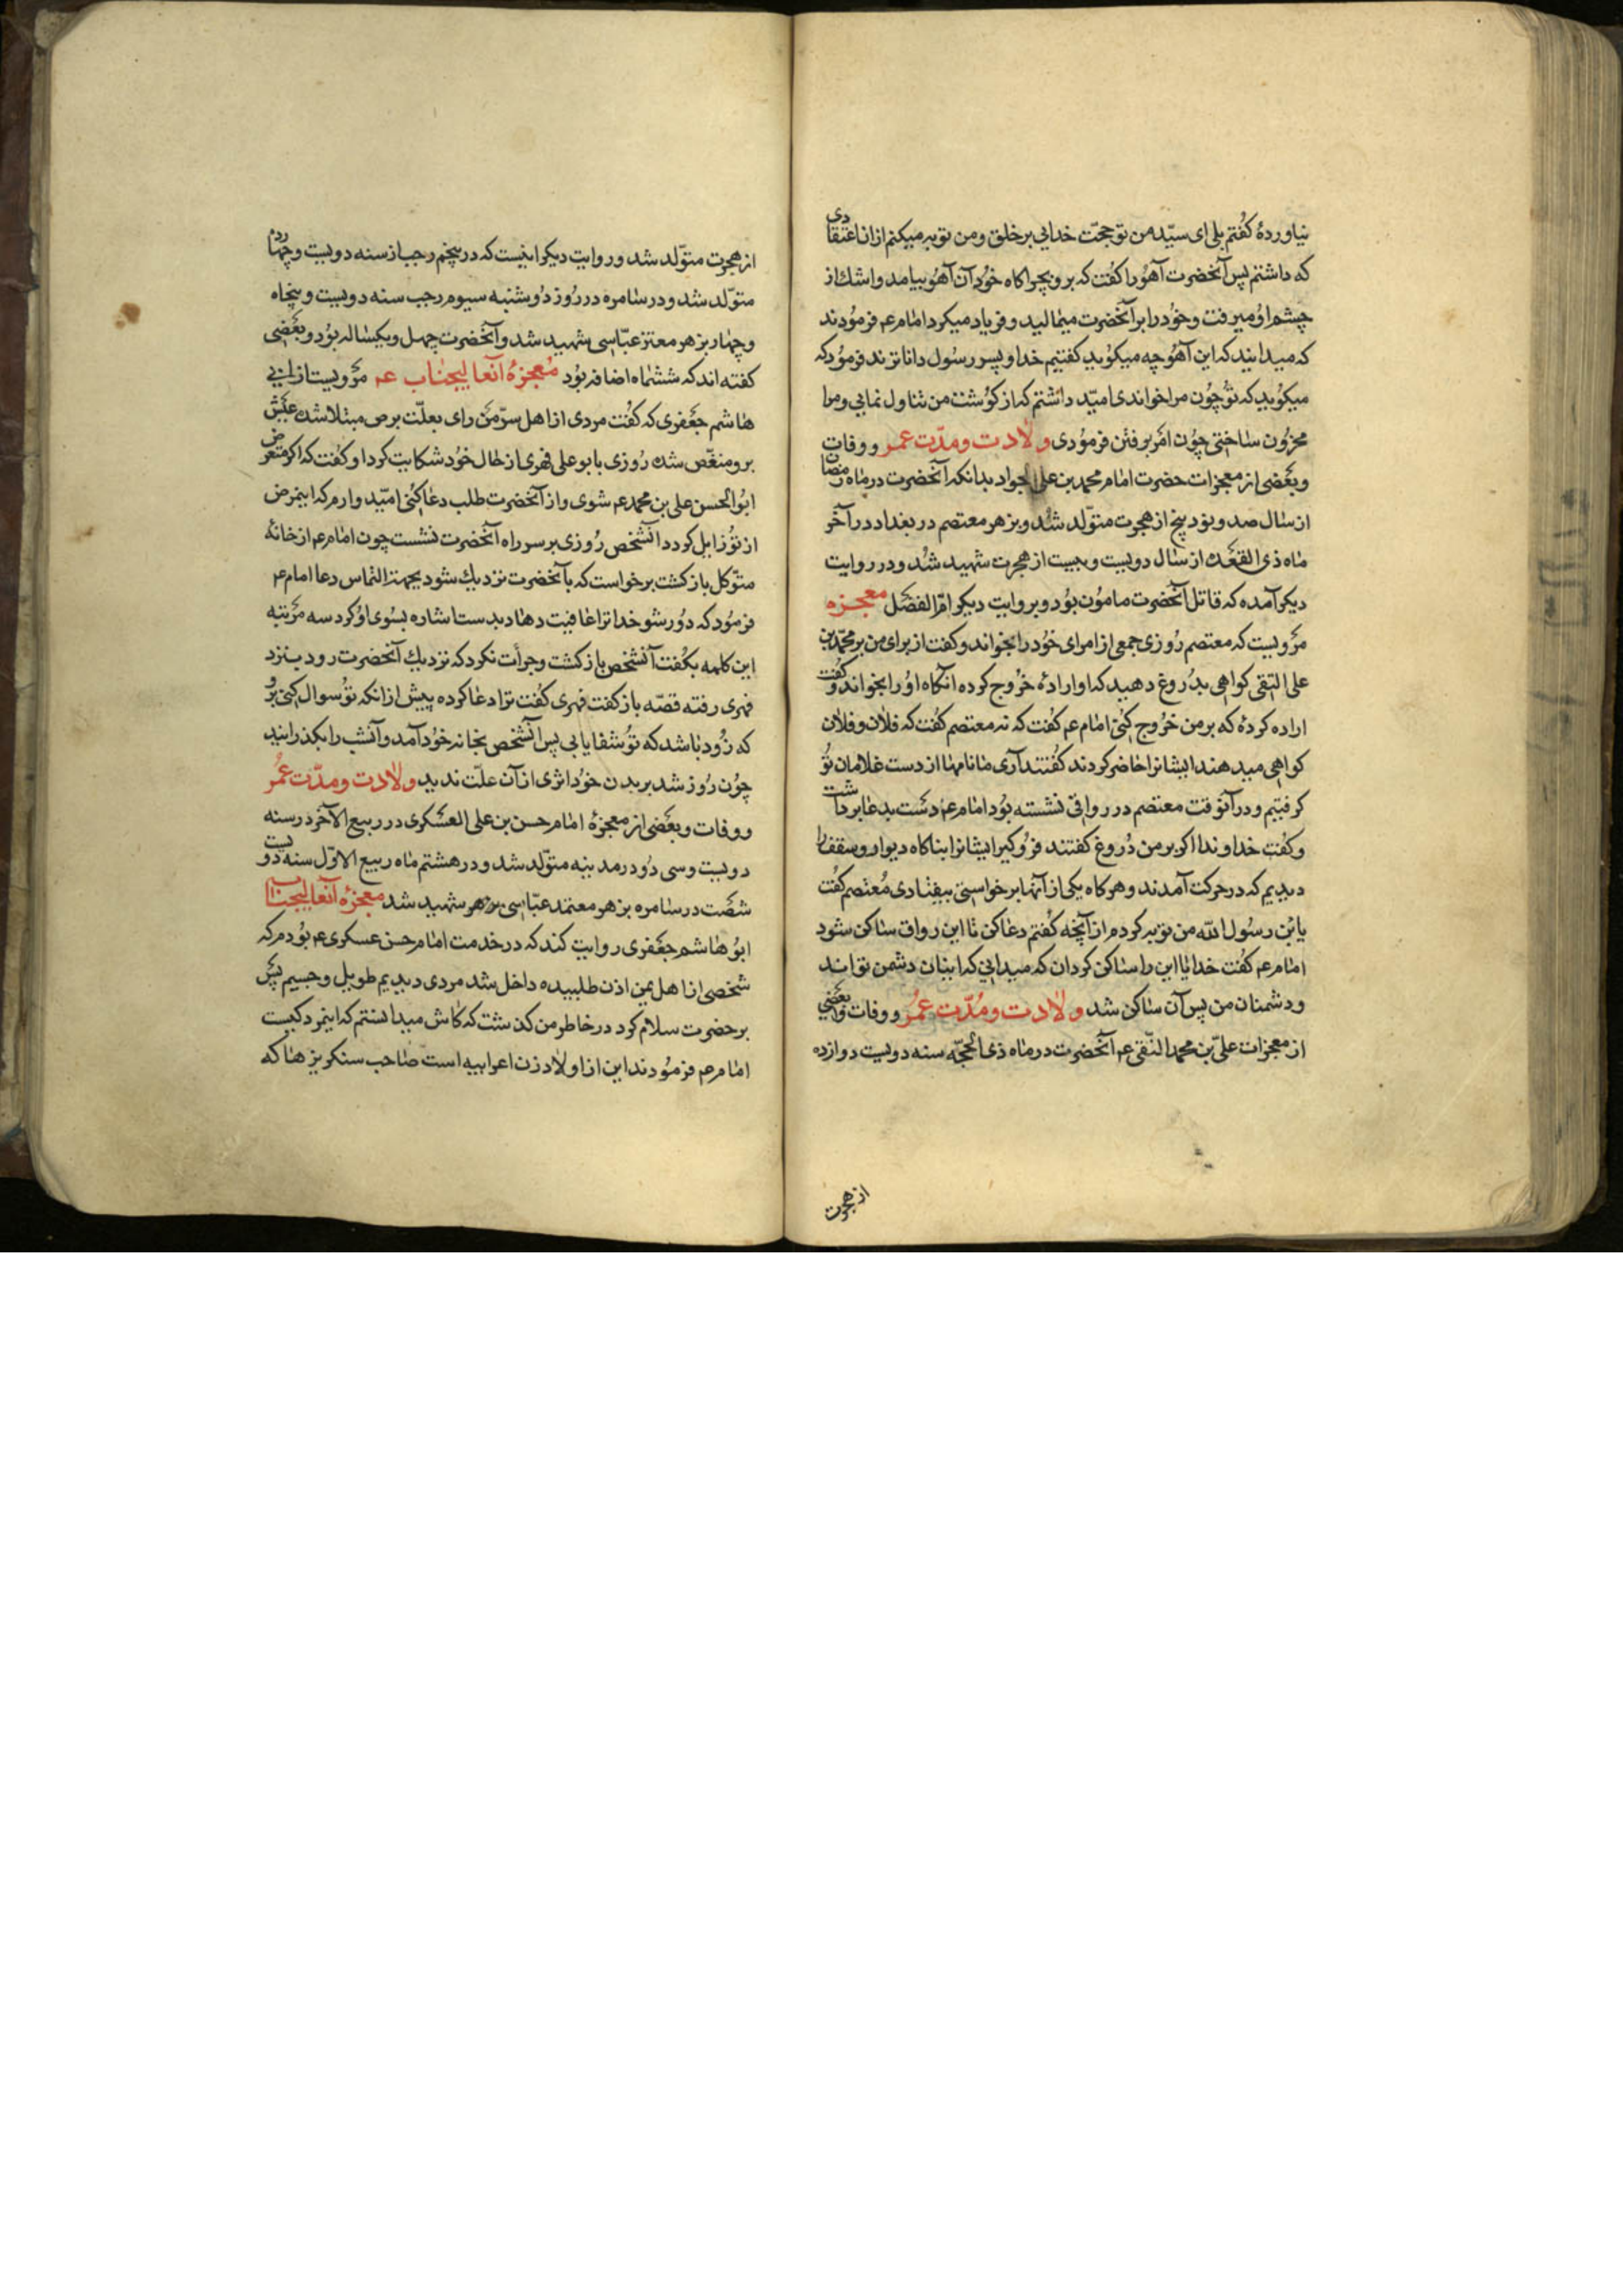 نیاوردهٔ کفتم بلی ای سیّد من تو حجّت خدایی بر خلق و من توبه میکنم از ان اعتقادی
که داشتم پس آنحضرت آهو را کفت که برو بچراکاه خود آن آهو بیامد و اشك از
چشم او میرفت و خود را بر آنحضرت میمالید و فریاد میکرد امام عم فرمودند
که میدانید که این آهو چه میکوید کفتیم خدا و پسر رسول داناترند فرمود که
میکوید که تو چون مرا خواندی امیّد داشتم که از کوشت من تناول نمایی و مرا
محزون ساختی چون امر برفتن فرمودی ولادت ومدّت عمر ووفات
وبعضی از معجزات حضرت امام محمد بن علی الجواد بدانکه آنحضرت در ماه رمضان
از سال صد و نود پنج از هجرت متولّد شد و بزهر معتصم در بغداد در آخر
ماه ذی القعده از سال دویست و بیست از هجرت شهید شد و در روایت
دیکر آمده که قاتل آنحضرت مامون بود و بروایت دیکر امّ الفضل معجزه
مرویست که معتصم روزی جمعی از امرای خود را بخواند و کفت از برای من بر محمّد بن
علی التقی کواهی بدروغ دهید که او ارادهٔ خروج کرده آنکاه او را بخواند و کفت
اراده کردهٔ که بر من خروج کنی امام عم کفت که نه معتصم کفت که فلان و فلان
کواهی میدهند ایشانرا حاضر کردند کفتند آری ما نامها از دست غلامان تو
کرفتیم و در آنوقت معتصم در رواقی نشسته بود امام عم دست بدعا برداشت
و کفت خداوندا اکر بر من دروغ کفتند فرو کیر ایشانرا بناکاه دیوار و سقف را
دیدیم که در حرکت آمدند و هرکاه یکی از آنها برخواستی بیفتادی معتصم کفت
یا بن رسول الله من توبه کردم از آنچه کفتم دعا کن تا این رواق ساکن شود
امام عم کفت خدایا این را ساکن کردان که میدانی که اینان دشمن تواند
و دشمنان من پس آن ساکن شد ولادت ومدّت عمر ووفات وبعضی
از معجزات علیّ بن محمد النّقی عم آنحضرت در ماه ذی الحجّه سنه دویست دوازده
از هجرت
از هجرت متولّد شد و روایت دیکر اینست که در پنجم رجب از سنه دویست و چهارده
متولّد شد و در سامره در روز دوشنبه سیوم رجب سنه دویست و پنجاه
و چهار بزهر معتز عبّاسی شهید شد و آنحضرت چهل و یکساله بود و بعضی
کفته اند که ششماه اضافه بود معجزهٔ آنعالیجناب عم مرویست از ابی
هاشم جعفری که کفت مردی از اهل سرّ من رای بعلّت برص مبتلا شد عیش
برو منغّص شد روزی با بو علی فهری از حال خود شکایت کرد او کفت که اکر متعرض
ابو الحسن علی بن محمد عم شوی و از آنحضرت طلب دعا کنی امیّدوارم که اینمرض
از تو زایل کردد آنشخص روزی بر سر راه آنحضرت نشست چون امام عم از خانهٔ
متوّکل باز کشت برخواست که بآنحضرت نزدیك شود بجهت التماس دعا امام عم
فرمود که دور شو خدا ترا عافیت دهاد بدست اشاره بسوی او کرد سه مرتبه
این کلمه بکفت آنشخص باز کشت و جرأت نکرد که نزدیك آنحضرت رود بنزد
فهری رفته قصّه باز کفت فهری کفت ترا دعا کرده پیش از انکه تو سوال کنی برو
که زود باشد که تو شفا یابی پس آنشخص بخانه خود آمد و آنشب را بکذرانید
چون روز شد بر بدن خود اثری از آن علّت ندید ولادت ومدّت عمر
ووفات وبعضی از معجزهٔ امام حسن بن علی العسکری در ربیع الآخر در سنه
دویست و سی دو در مدینه متولّد شد و در هشتم ماه ربیع الاوّل سنه دویست
شصت در سامره بزهر معتمد عبّاسی بزهر شهید شد معجزهٔ آنعالیجناب
ابو هاشم جعفری روایت کند که در خدمت امام حسن عسکری عم بودم که
شخصی از اهل یمن اذن طلبیده داخل شد مردی دیدیم طویل و جسیم پس
بر حضرت سلام کرد در خاطر من کذشت که کاش میدانستم که اینمرد کیست
امام عم فرمودند این از اولاد زن اعرابیه است صاحب سنکریزها که